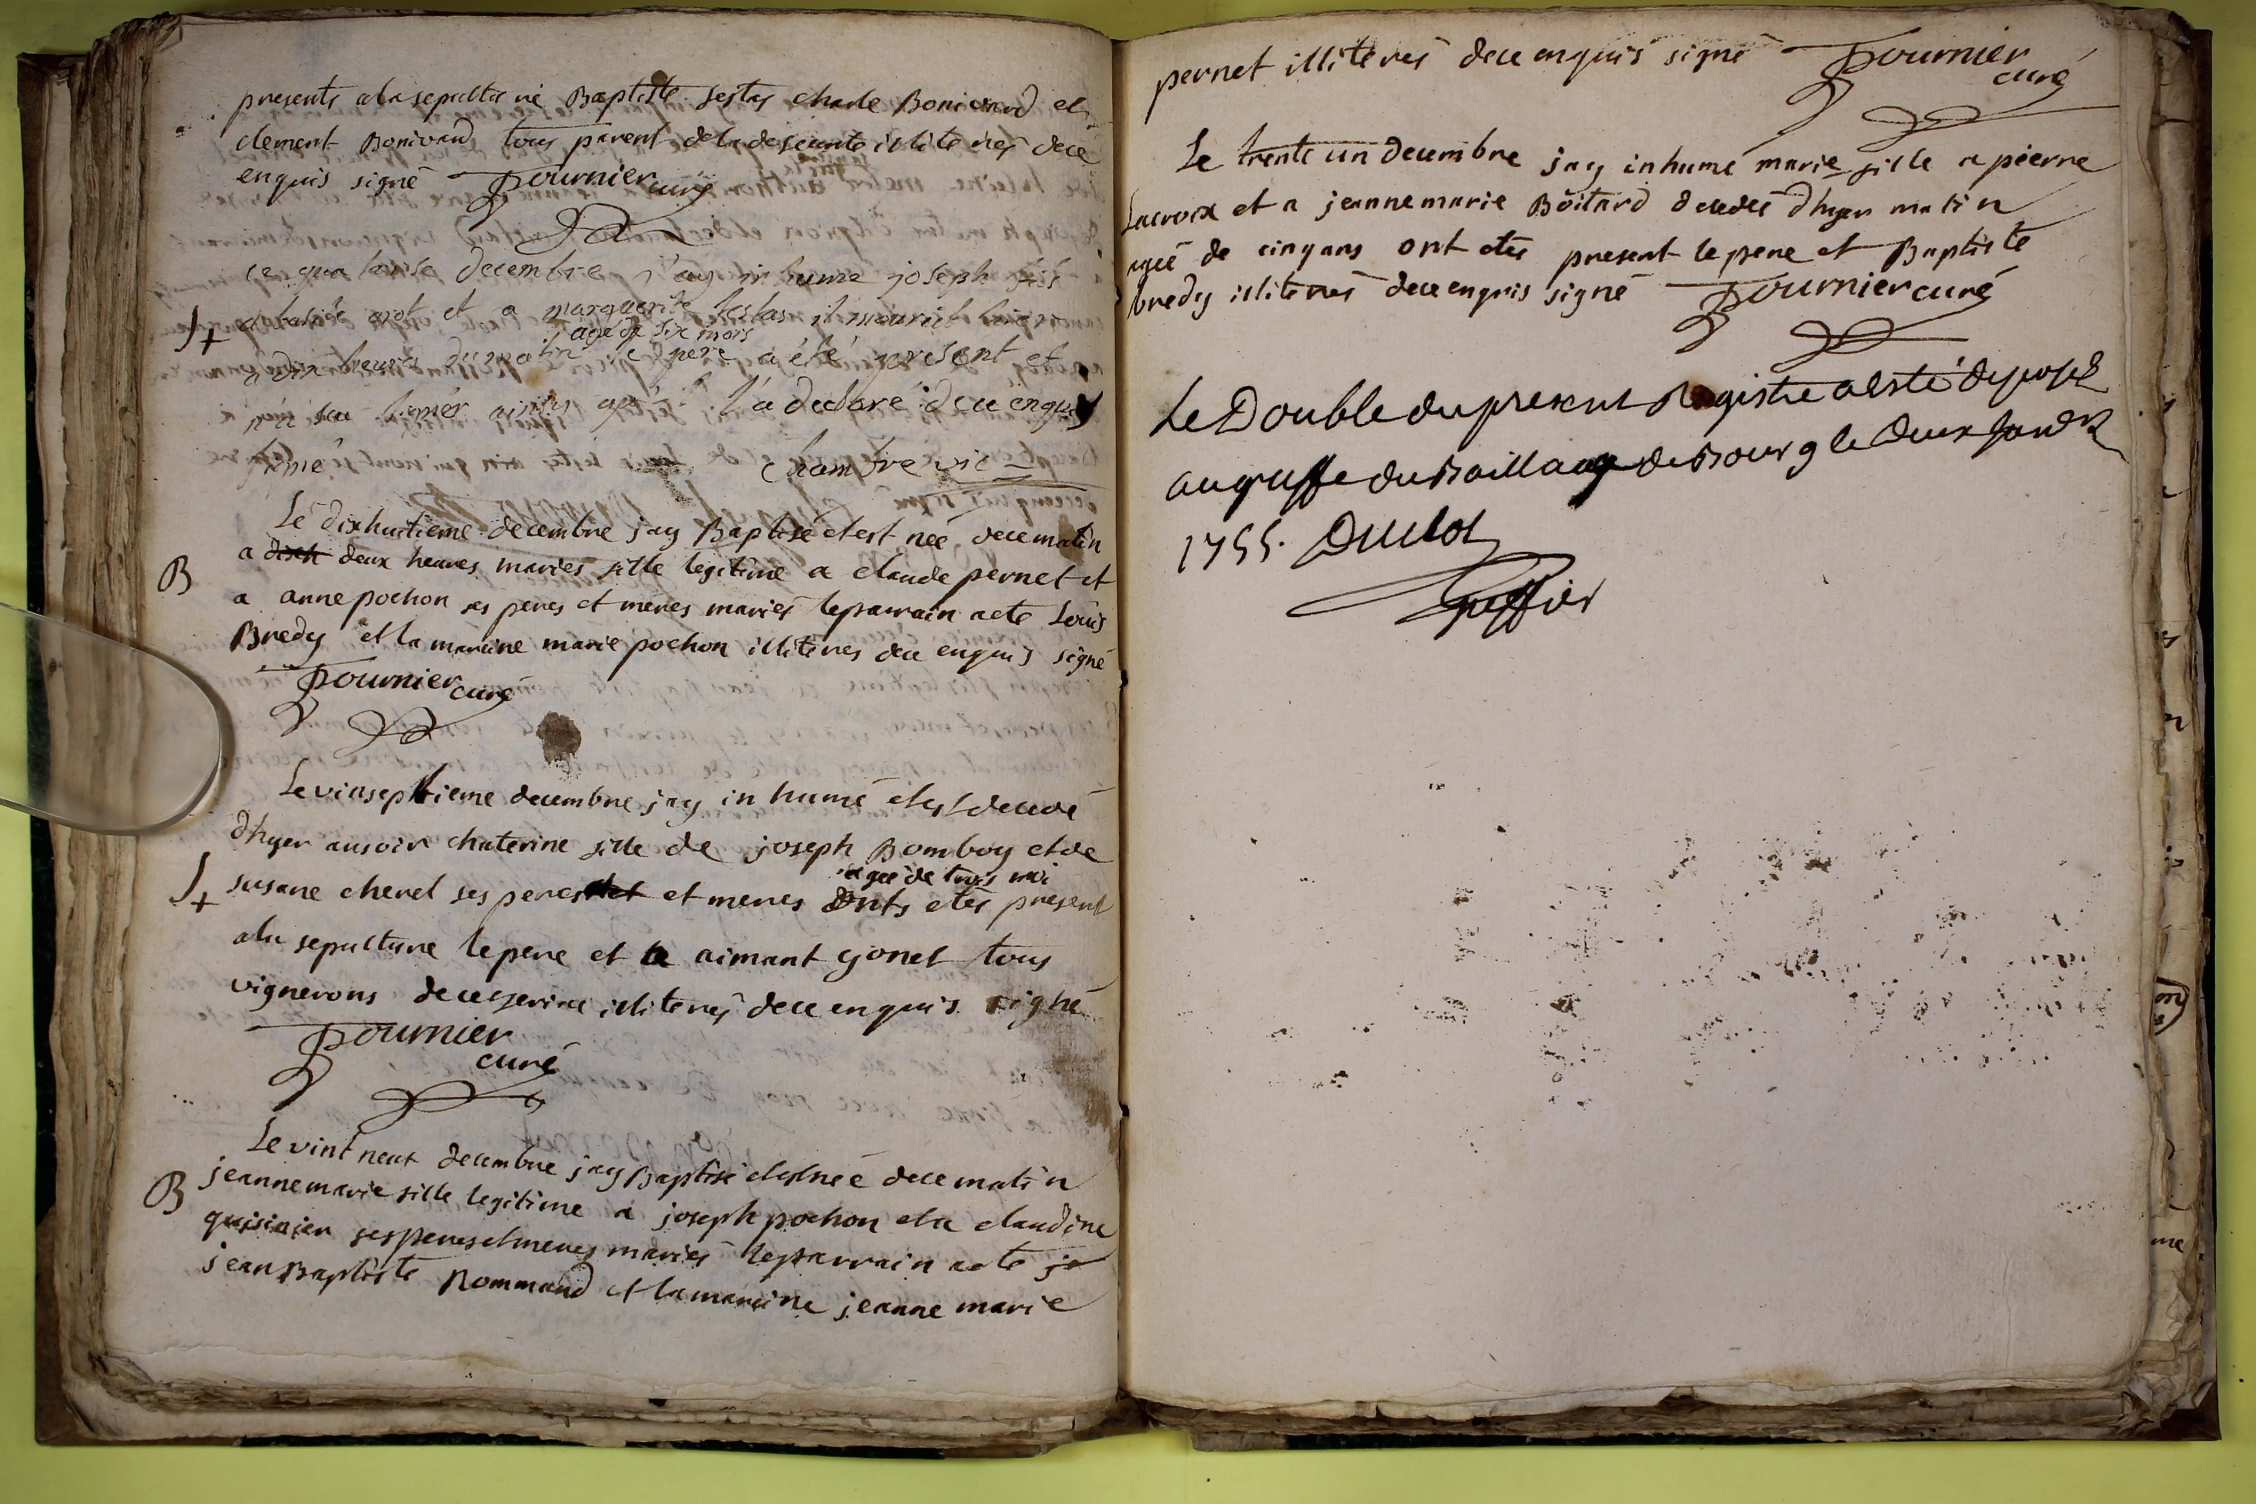 presents a la sepulture Baptiste sestas charle Bonivard et
clement Bonivard tous parent de la defeunte illiterés dece
enquis signé Fournier curé
ce quatorise decembre j'ay inhumé joseph fils
S+
a et a marguerite sestas il mourut hier
agé de six mois
a dix heures du matin le pere a été present et
l'a declaré dece enquis
signé
Le dixhuitieme decembre jay Baptisé et est née dece matin
B
a deux heures maries fille legitime a claude pernet et
a anne pochon ses peres et meres mariés le parrain acte Louis
Bredy et la maraine marie pochon illiteres dece enquis signé
Fournier curé
Le vinseptieme decembre jay inhumé et est decedé
dhyer ausoir chaterine fille de joseph Bomboy et de
agée de trois moi
S+
susane cheret ses peres et meres onts etés present
a la sepulture le pere et aimant gonet tous
vignerons de illiterés dece enquis signé
Fournier
curé
Le vint neuf decembre jay Baptisé et est née dece matin
B
jeanne marie fille legitime a joseph pochon et a claudine
quisinier ses peres et meres mariés le parrain acte je
jean Baptiste Rommand et la maraine jeanne marie
pernet illiterés dece enquis signé Fournier
curé
Le trente un decembre jay inhumé marie fille a pierre
Lacroix et a jeanne marie Boitard decedés dhyer matin
agée de cinq ans ont etés present le pere et Baptiste
bredy illiterés dece enquis signé Fournier curé
Le Double du present Registre a esté deposé
au greffe du Baillage de Bourg le deux Janvier
1755. Duclot
Greffier